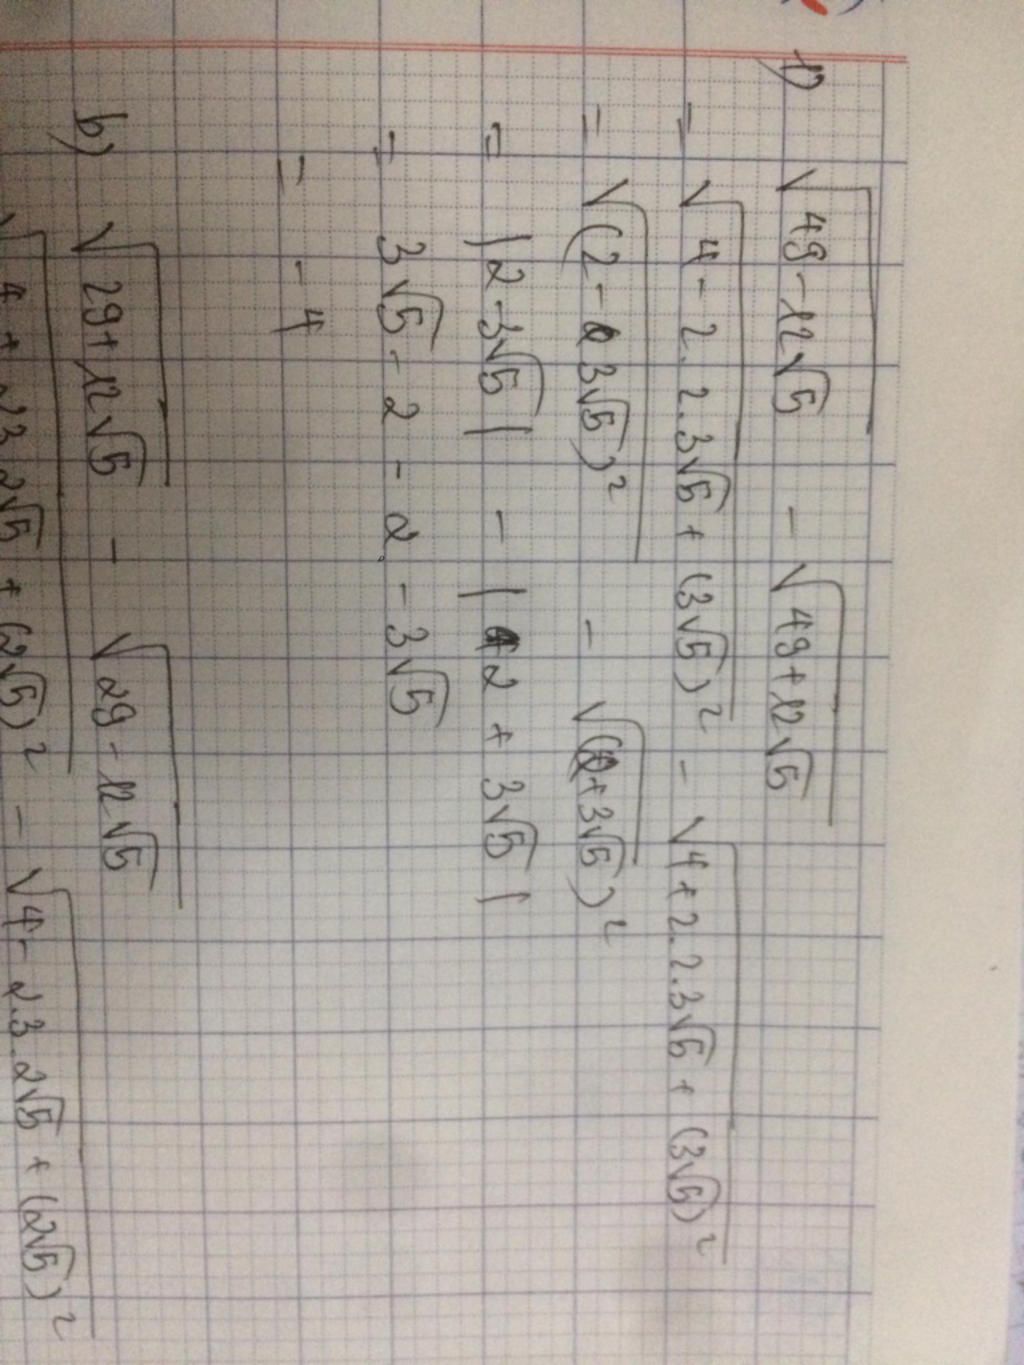 1) √(49-12√5) - √(49+12√5)
= √(4-2.2.3√5+(3√5)²) - √(4+2.2.3√5+(3√5)²)
= √((2-3√5)²) - √((2+3√5)²)
= |2-3√5| - |2+3√5|
= 3√5-2-2-3√5
= -4
b) √(29+12√5) - √(29-12√5)
√(4+2.3.2√5+(2√5)²) - √(4-2.3.2√5+(2√5)²)